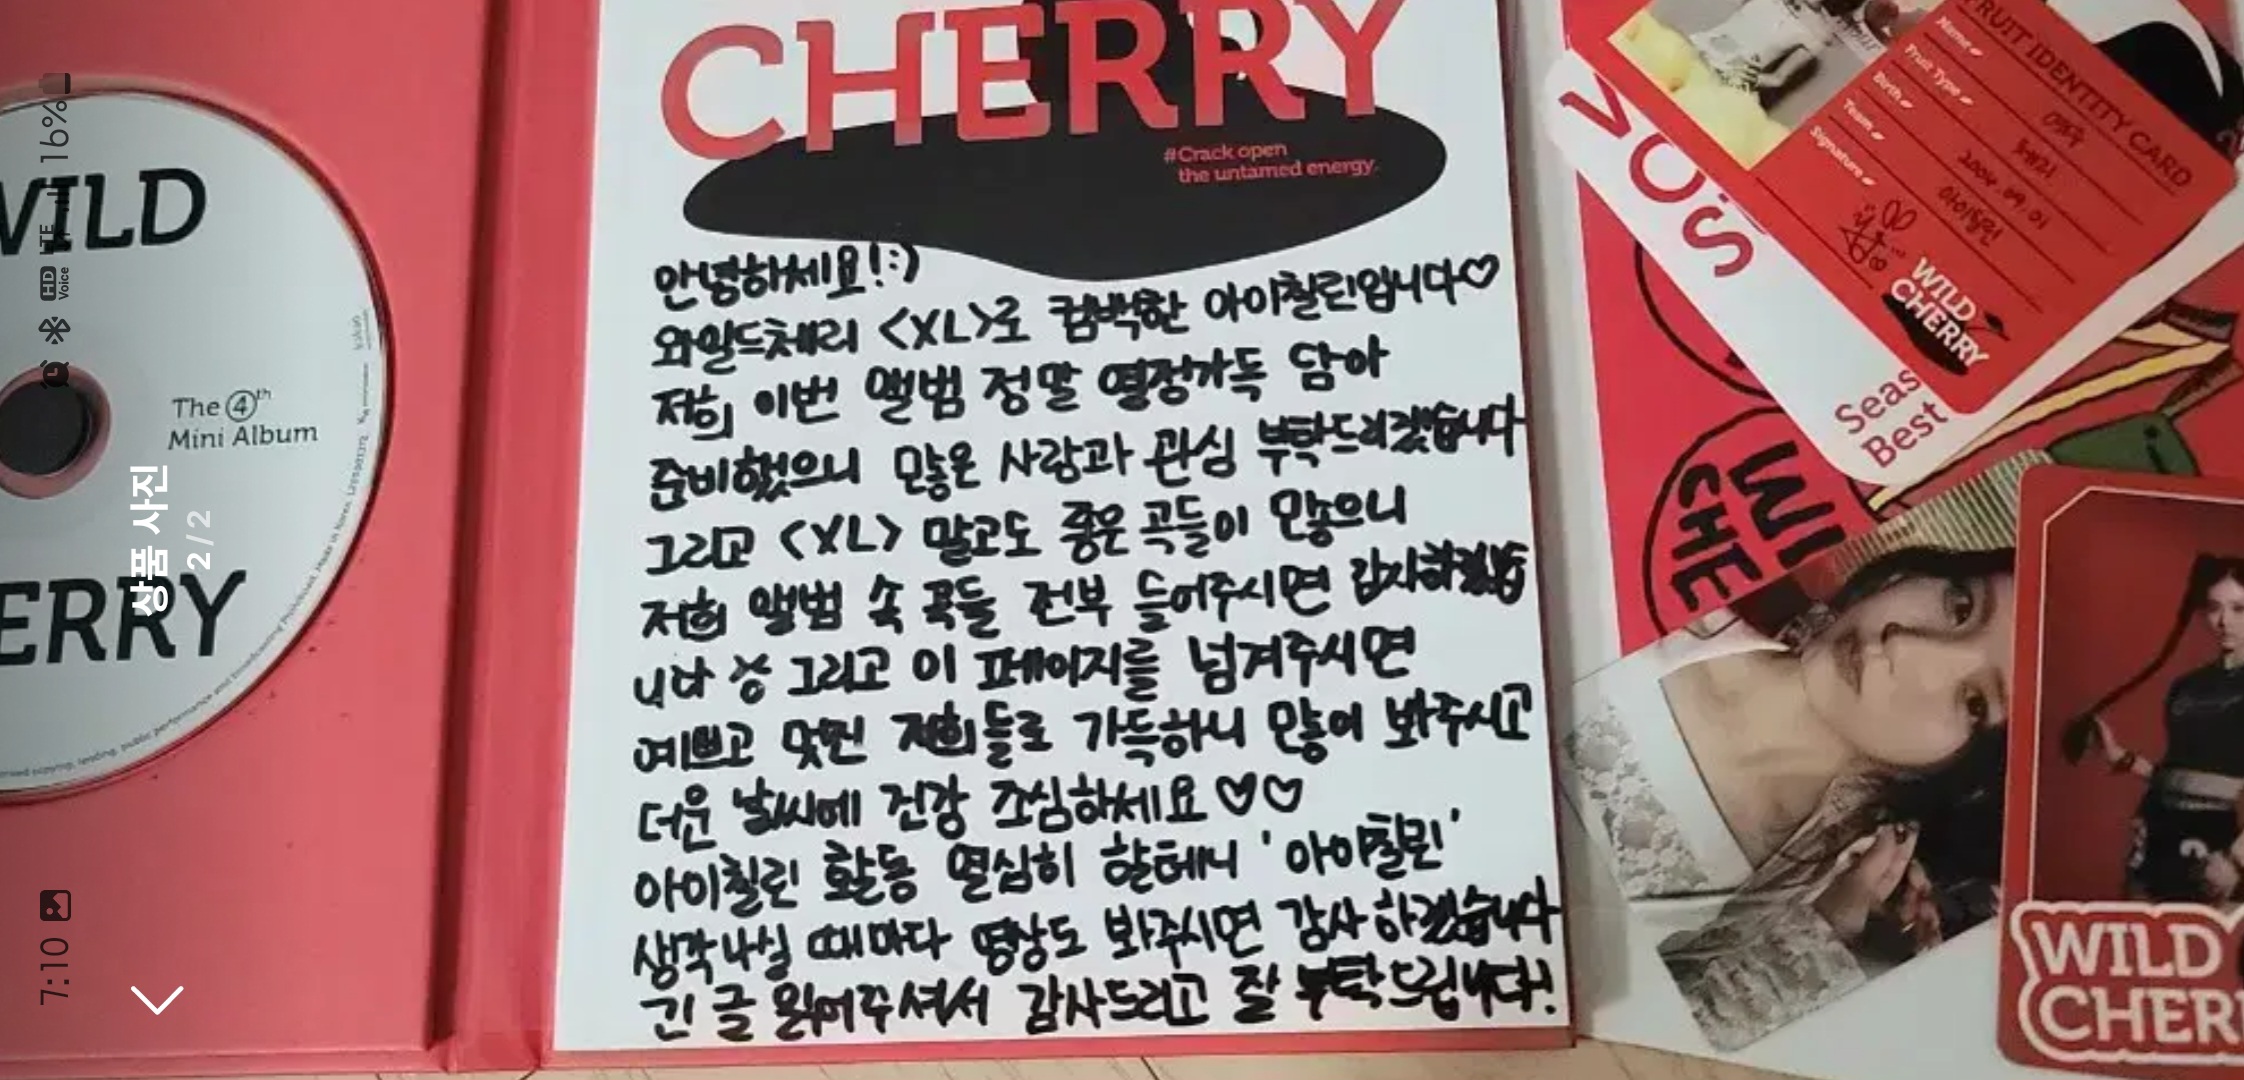 7:10
LTE
HD Voice
16%
상품 사진
2/2
WILD
CHERRY
The 4th
Mini Album
CHERRY
#Crack open
the untamed energy.
안녕하세요! :)
와일드체리 <XL>로 컴백한 아이칠린입니다♡
저희 이번 앨범 정말 열정가득 담아
준비했으니 많은 사랑과 관심 부탁드리겠습니다
그리고 <XL> 말고도 좋은 곡들이 많으니
저희 앨범 속 곡들 전부 들어주시면 감사하겠습
니다 그리고 이 페이지를 넘겨주시면
예쁘고 멋진 저희들로 가득하니 많이 봐주시고
더운 날씨에 건강 조심하세요♡♡
아이칠린 활동 열심히 할테니 '아이칠린'
생각나실 때마다 영상도 봐주시면 감사하겠습니다
긴 글 읽어주셔서 감사드리고 잘 부탁드립니다!
FRUIT IDENTITY CARD
Name
Fruit Type
Birth
2004.09.01
Team
아이칠린
Signature
WILD
CHERRY
Seas
Best
WI
CHE
WILD
CHER